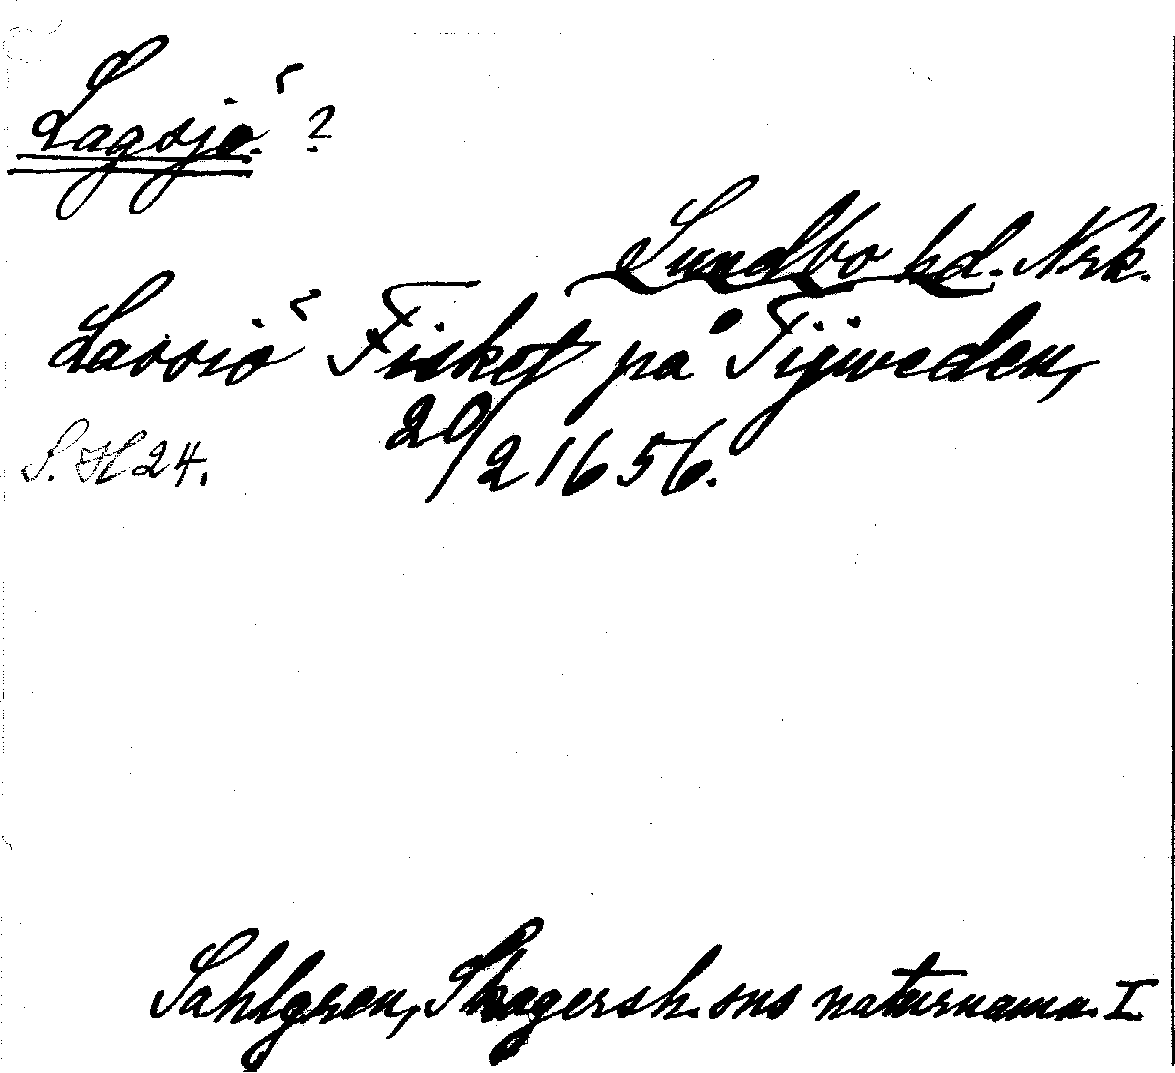 Lagsjö. ?
Sundbo hd. Nrk.
Lassiö Fisket på Tijweden,
S. H 24. 20/2 1656.
Sahlgren, Skagersh. sns naturnamn. I